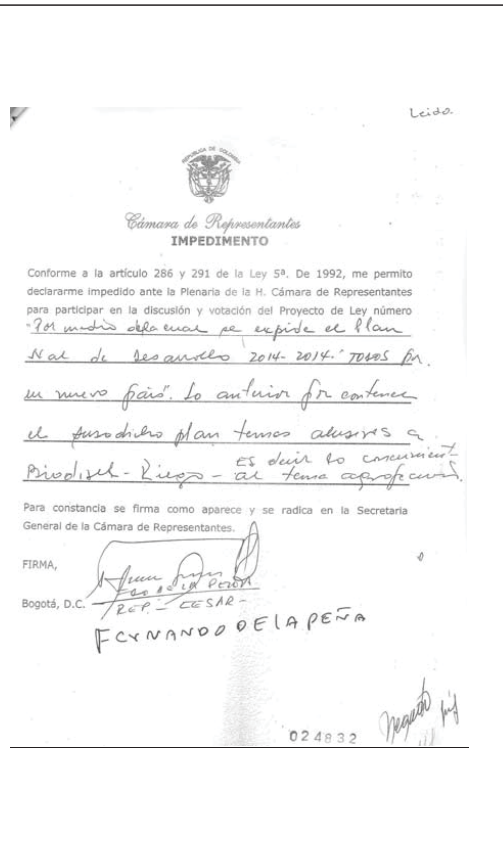 Leido.
REPUBLICA DE COLOMBIA
Cámara de Representantes
IMPEDIMENTO
Conforme a la artículo 286 y 291 de la Ley 5ª. De 1992, me permito
declararme impedido ante la Plenaria de la H. Cámara de Representantes
para participar en la discusión y votación del Proyecto de Ley número
"Por medio de la cual se expide el Plan
Nal de Desarrollo 2014-2014." TODOS POR
un nuevo país". Lo anterior por contener
el susodicho plan temas alusivos a
Biodisel - Riego - es decir lo concerniente
al tema agropecuario.
Para constancia se firma como aparece y se radica en la Secretaria
General de la Cámara de Representantes.
FIRMA,
DE LA PEÑA
Bogotá, D.C.
REP. - CESAR -
FERNANDO DE LA PEÑA
Negado
024832